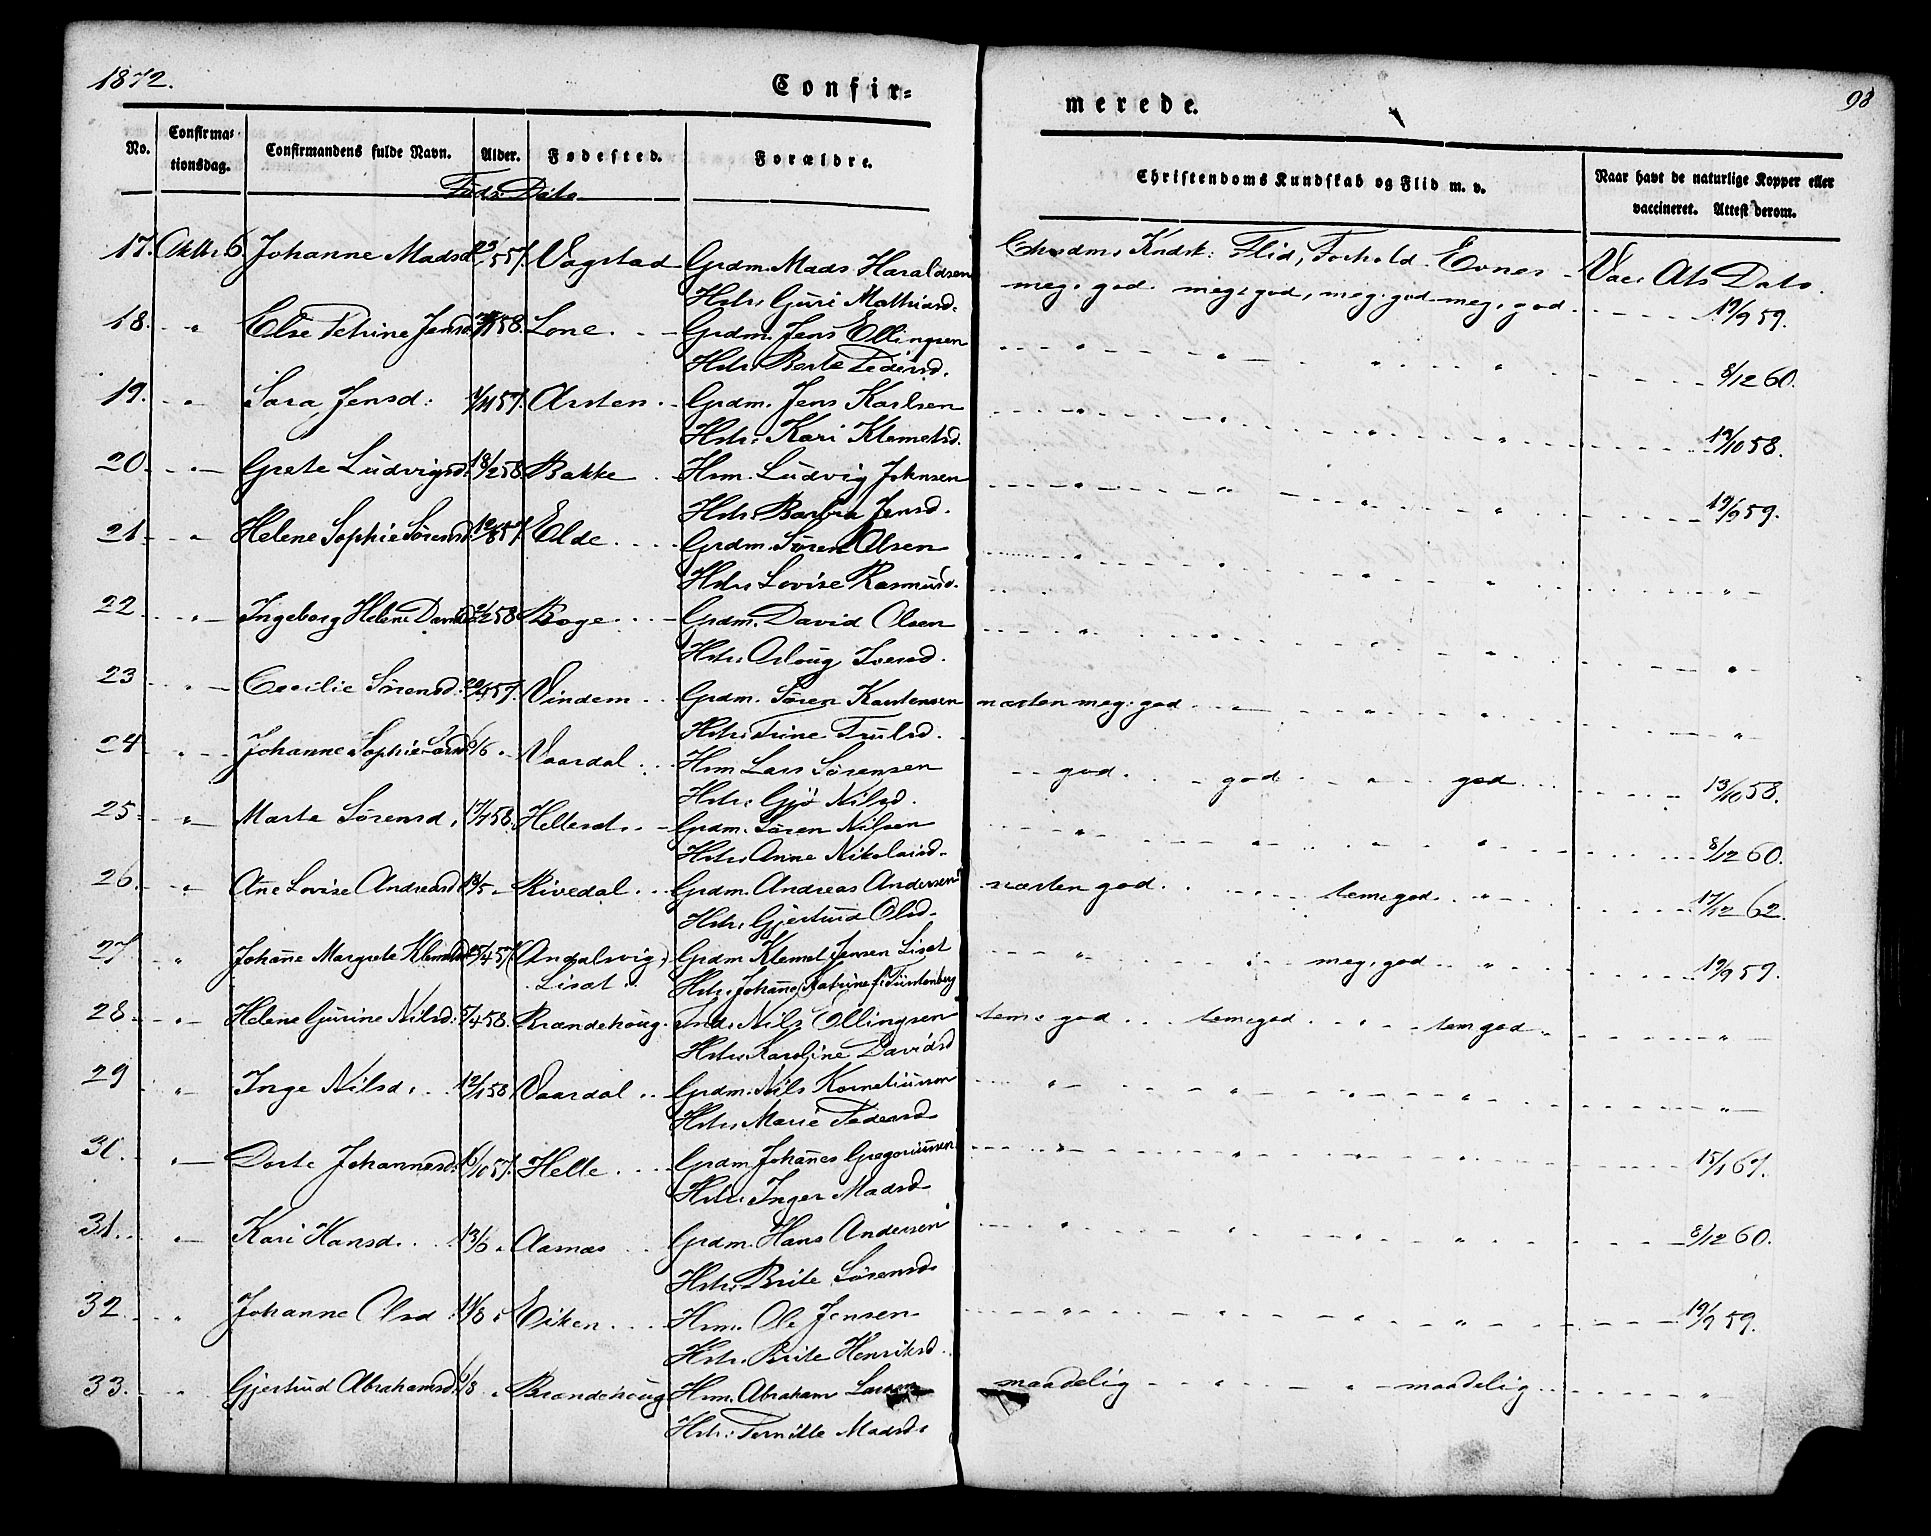 1872.
Confir=
No.
Confirma=
tionsdag.
Confirmandens fulde Navn.
Alder.
Fødested.
Forældre.
Føds: Dato
17. Oktbr 6. Johanne Madsd 57. Vagstad Grdm. Mads Haraldsen
Hstr. Guri Mathiasd.
18. " Else Petrine Jensd. 58. Lone. Grdm. Jens Ellingsen
Hstr. Berte Pedersd.
19. " Sara Jensd: 1/11 57. Arsten Grdm. Jens Karlsen
Hstr. Kari Klemetsd.
20 " Grete Ludvigsd. 18/2 58. Bakke Hsm. Ludvig Johnsen
Hstr. Barbra Jensd.
21 " Helene Sophie Sørensd. 12/8 57. Elde Grdm. Søren Olsen
Hstr. Lovise Rasmusd.
22 " Ingeborg Helene Davidsd 2/2 58 Boge Grdm. David Olsen
Hstr. Oloug Iversd.
23 " Cecilie Sørensd. 20/4 57. Vindem Grdm. Søren Karstensen
Hstr. Trine Trulsd.
24 " Johanne Sophie Larsd. 6/6 " Vaardal Hsm Lars Sørensen
Hstr. Gjø Nilsd.
25 " Marte Sørensd. 17/4 58. Hellesdt. Grdm. Søren Nilsen
Hstr. Anne Nikolaisd.
26 " Ane Lovise Andreasd 18/5 " Rivedal Grdm. Andreas Andersen
Hstr. Gjertrud Olsd.
27 " Johanne Margrete Klemetsd 25/4 57 (Andalsvig) Grdm Klemet Jensen Liset
Liset. Hstr. Johanne Katrine f.
28 " Helene Gurine Nilsd. 5/4 58. Brandehoug. Ind. Nils Ellingsen
Hstr. Karoline Davidsd
29 " Inge Nilsd. 12/1 58. Vaardal Grdm. Nils Korneliussen
Hstr. Marie Pedersd.
30. " Dorte Johannesd. 16/10 57. Helle Grdm. Johanes Gregoriussen
Hstr. Inger Madsd.
31. " Kari Hansd. 13/6 " Aasnæs Grdm. Hans Andersen
Hstr. Brite Sørensd.
32. " Johanne Olsd. 11/8 " Eiken Hsm. Ole Jensen
Hstr. Brite Henriksd.
33. " Gjertrud Abrahamsd. 6/8 " Brandehoug Hsm. Abraham Larsen
Hstr. Pernille Madsd.
98
merede.
Christendoms Kundskab og Flid m. v.
Naar havt de naturlige Kopper eller
vaccineret. Attest derom.
Chrdms Kndsk: Flid, Forhold. Evner. Vac. Ats Dato.
meg. god. meg. god, meg. god meg. god. 19/9 59.
" " " " 8/12 60.
" " " " 19/10 58.
" " " " 19/9 59.
" " " " "
" " " " "
næsten meg. god " " " "
god. god " god 13/10 58.
" " " " 8/12 60.
næsten god. temgod. " 17/12 62.
" " meg. god " 19/9 59.
tem. god temgod. " temgod "
" " " " "
" " " " 15/1 61.
" " " " 8/12 60.
" " " " 19/9 59.
maadelig " " maadelig "